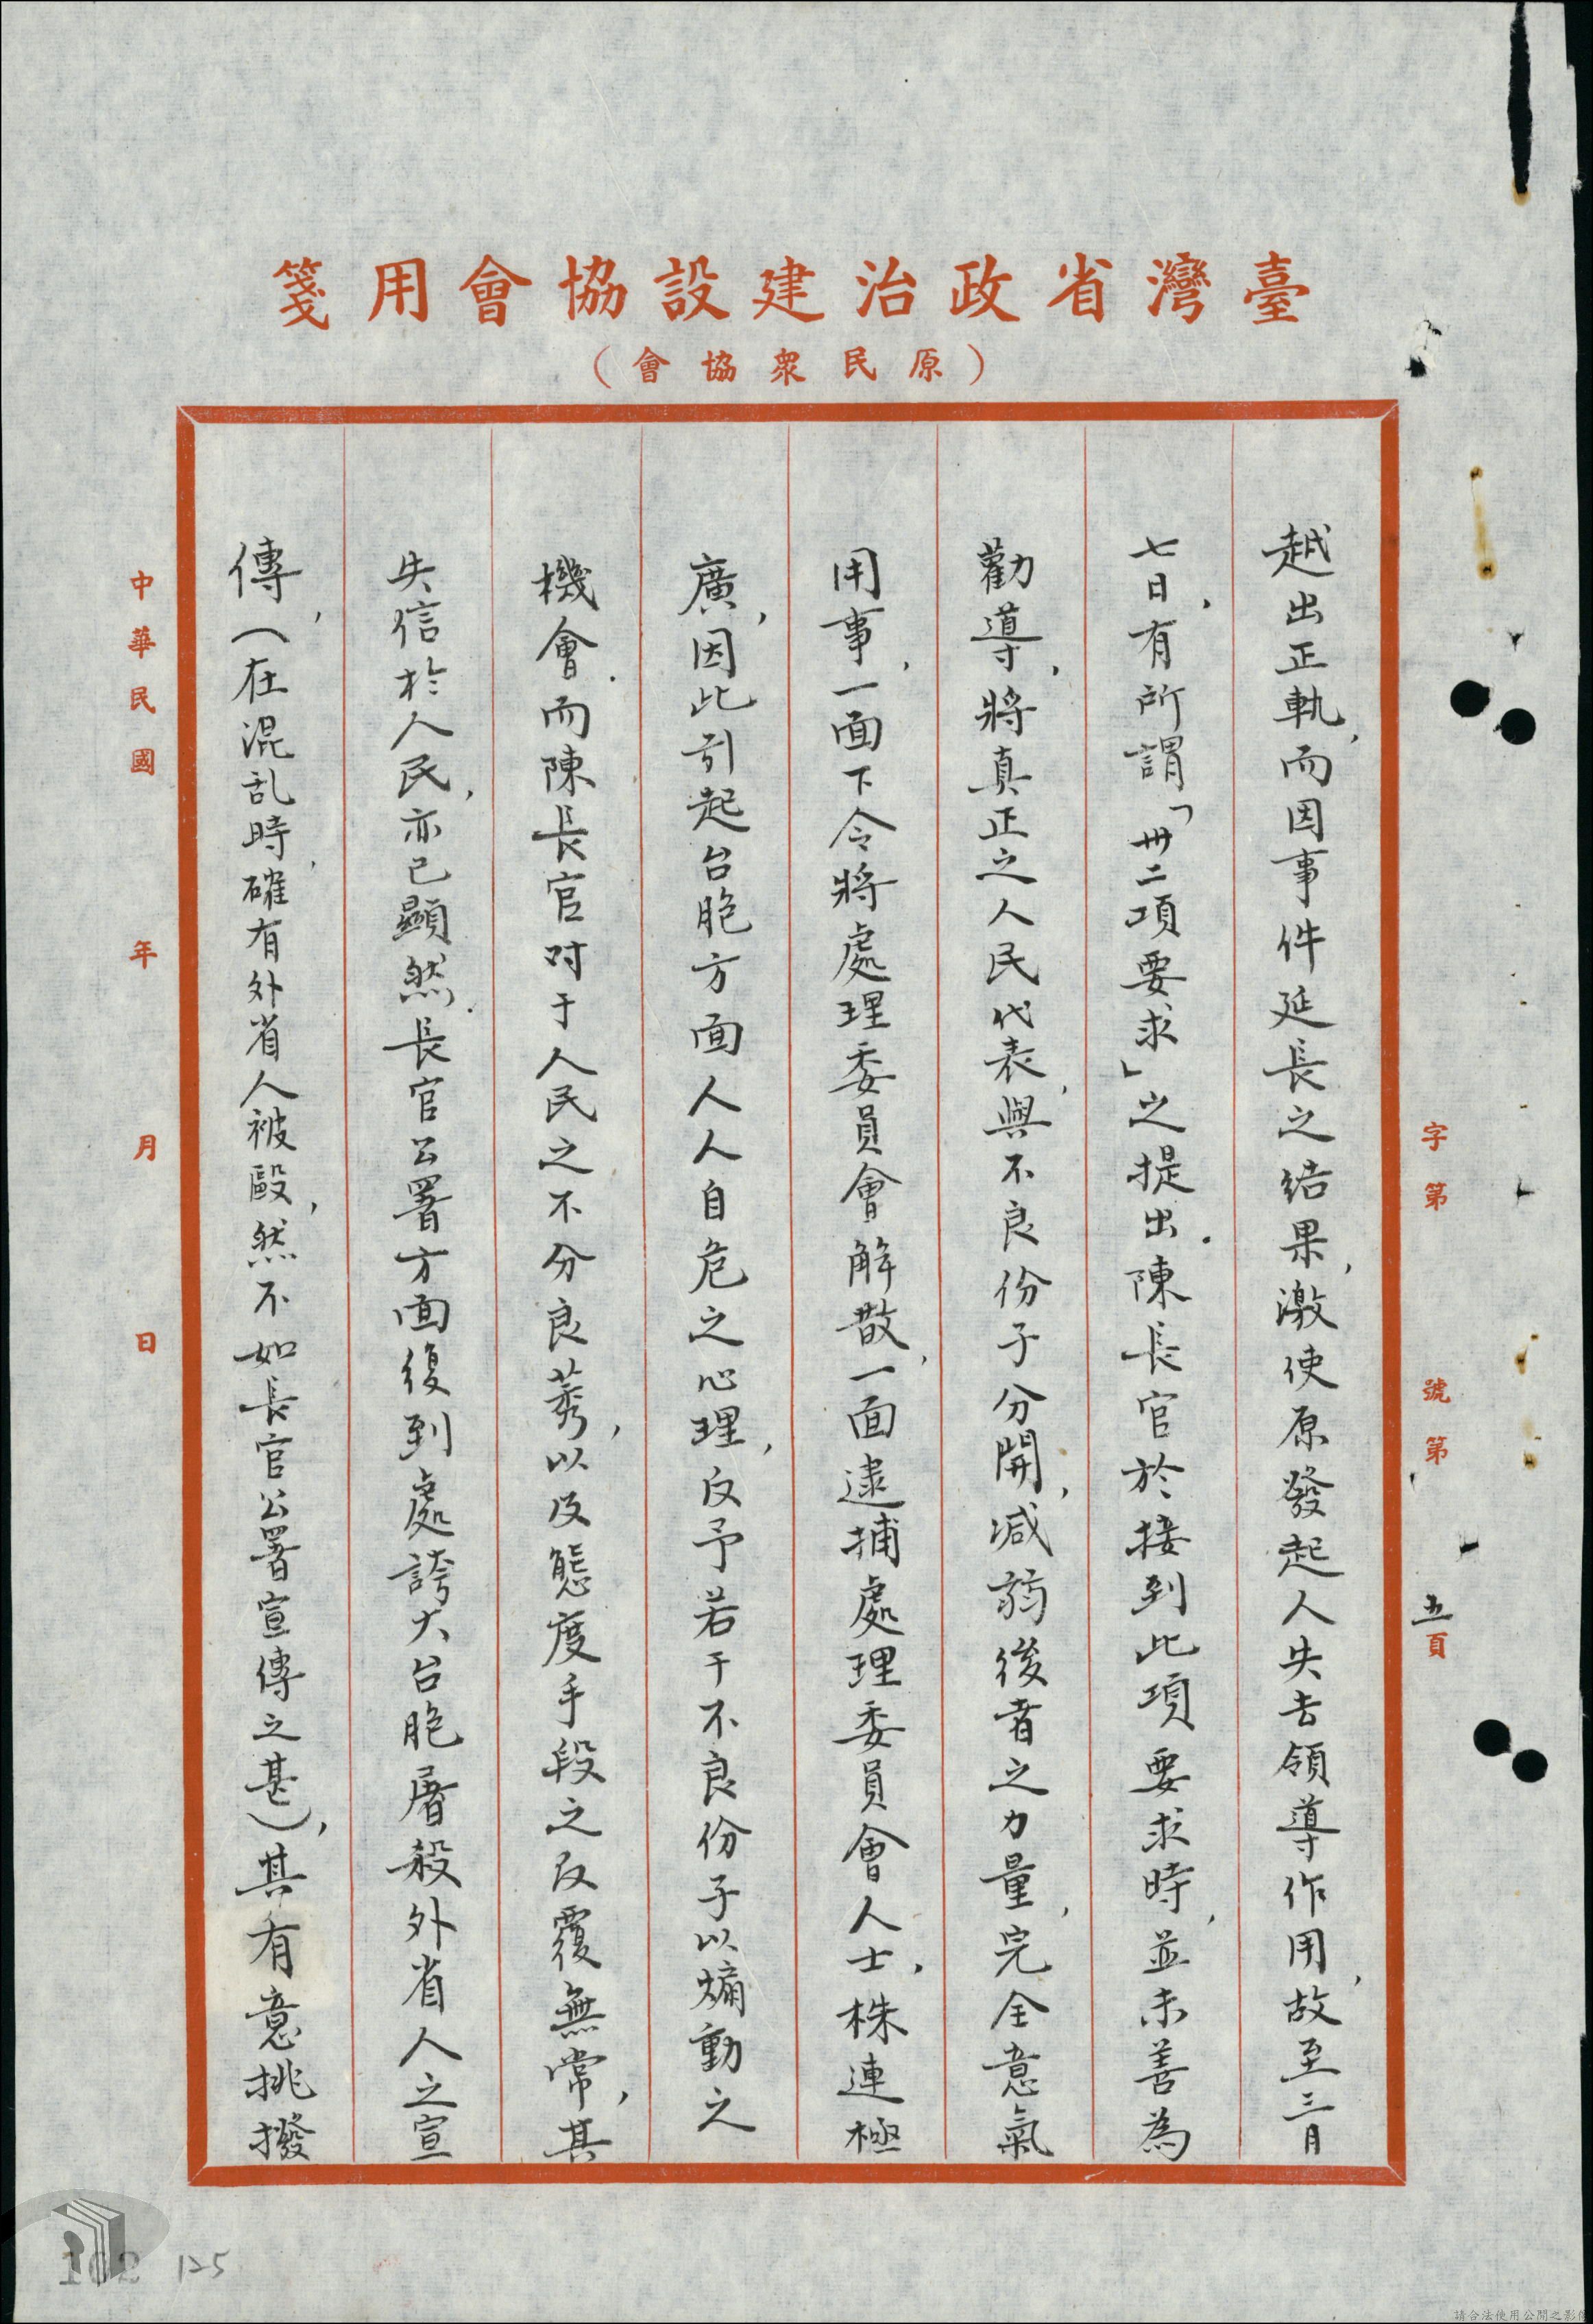 臺灣省政治建設協會用箋
（原民眾協會）
字第　號第五頁
越出正軌，而因事件延長之結果，激使原發起人失去領導作用，故至三月
七日，有所謂「卅二項要求」之提出．陳長官於接到此項要求時，並未善為
勸導，將真正之人民代表，與不良份子分開，減弱後者之力量，完全意氣
用事，一面下令將處理委員會解散，一面逮捕處理委員會人士，株連極
廣，因此引起台胞方面人人自危之心理，反予若干不良份子以煽動之
機會．而陳長官对于人民之不分良莠，以及態度手段之反覆無常，其
失信於人民，亦已顯然．長官公署方面復到處誇大台胞屠殺外省人之宣
傳，（在混乱時，確有外省人被毆，然不如長官公署宣傳之甚），其有意挑撥
中華民國　年　月　日
102 125
請合法使用公開之影像